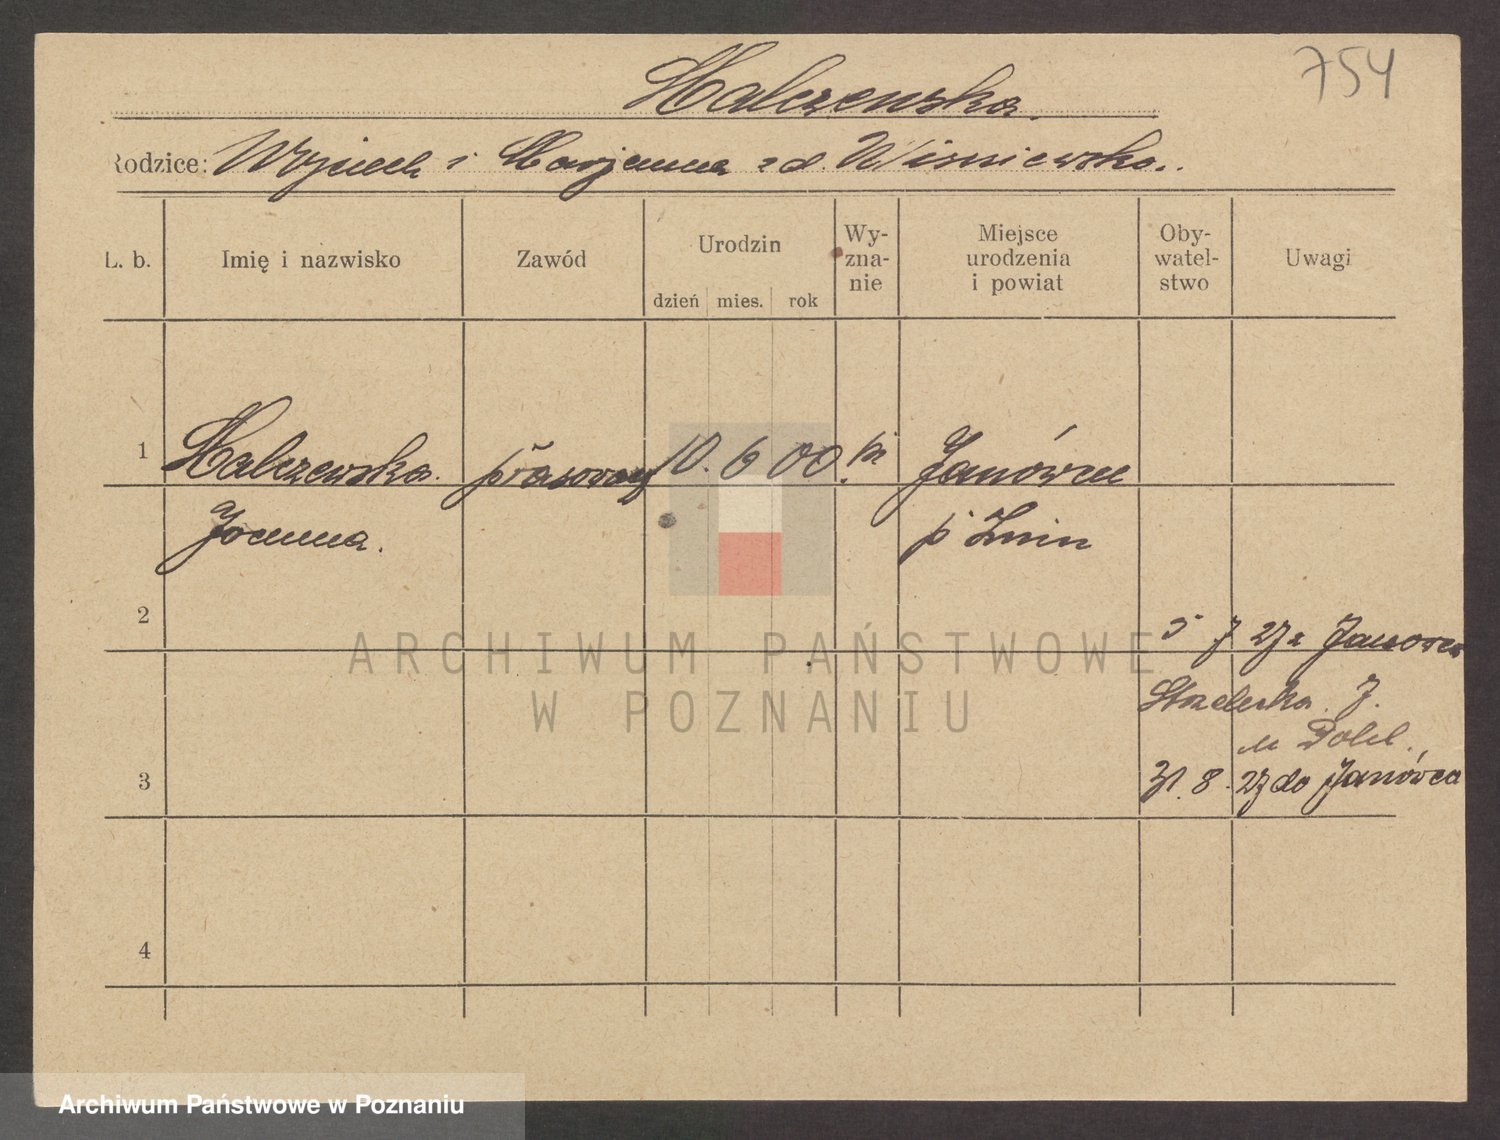 754
Malczewska.
Rodzice: Wojciech i Marjanna z d. Wiśniewska.
L. b. Imię i nazwisko Zawód Urodzin dzień mies. rok Wy-znanie Miejsce urodzenia i powiat Oby-watel-stwo Uwagi
1 Malczewska. 10. 6 00. Janówiec
Joanna. p Żnin
2
5 7 27 z Janowca
Strzelecka. J.
u
3 31. 8. 27 do Janówca
4
ARCHIWUM PAŃSTWOWE
W POZNANIU
Archiwum Państwowe w Poznaniu